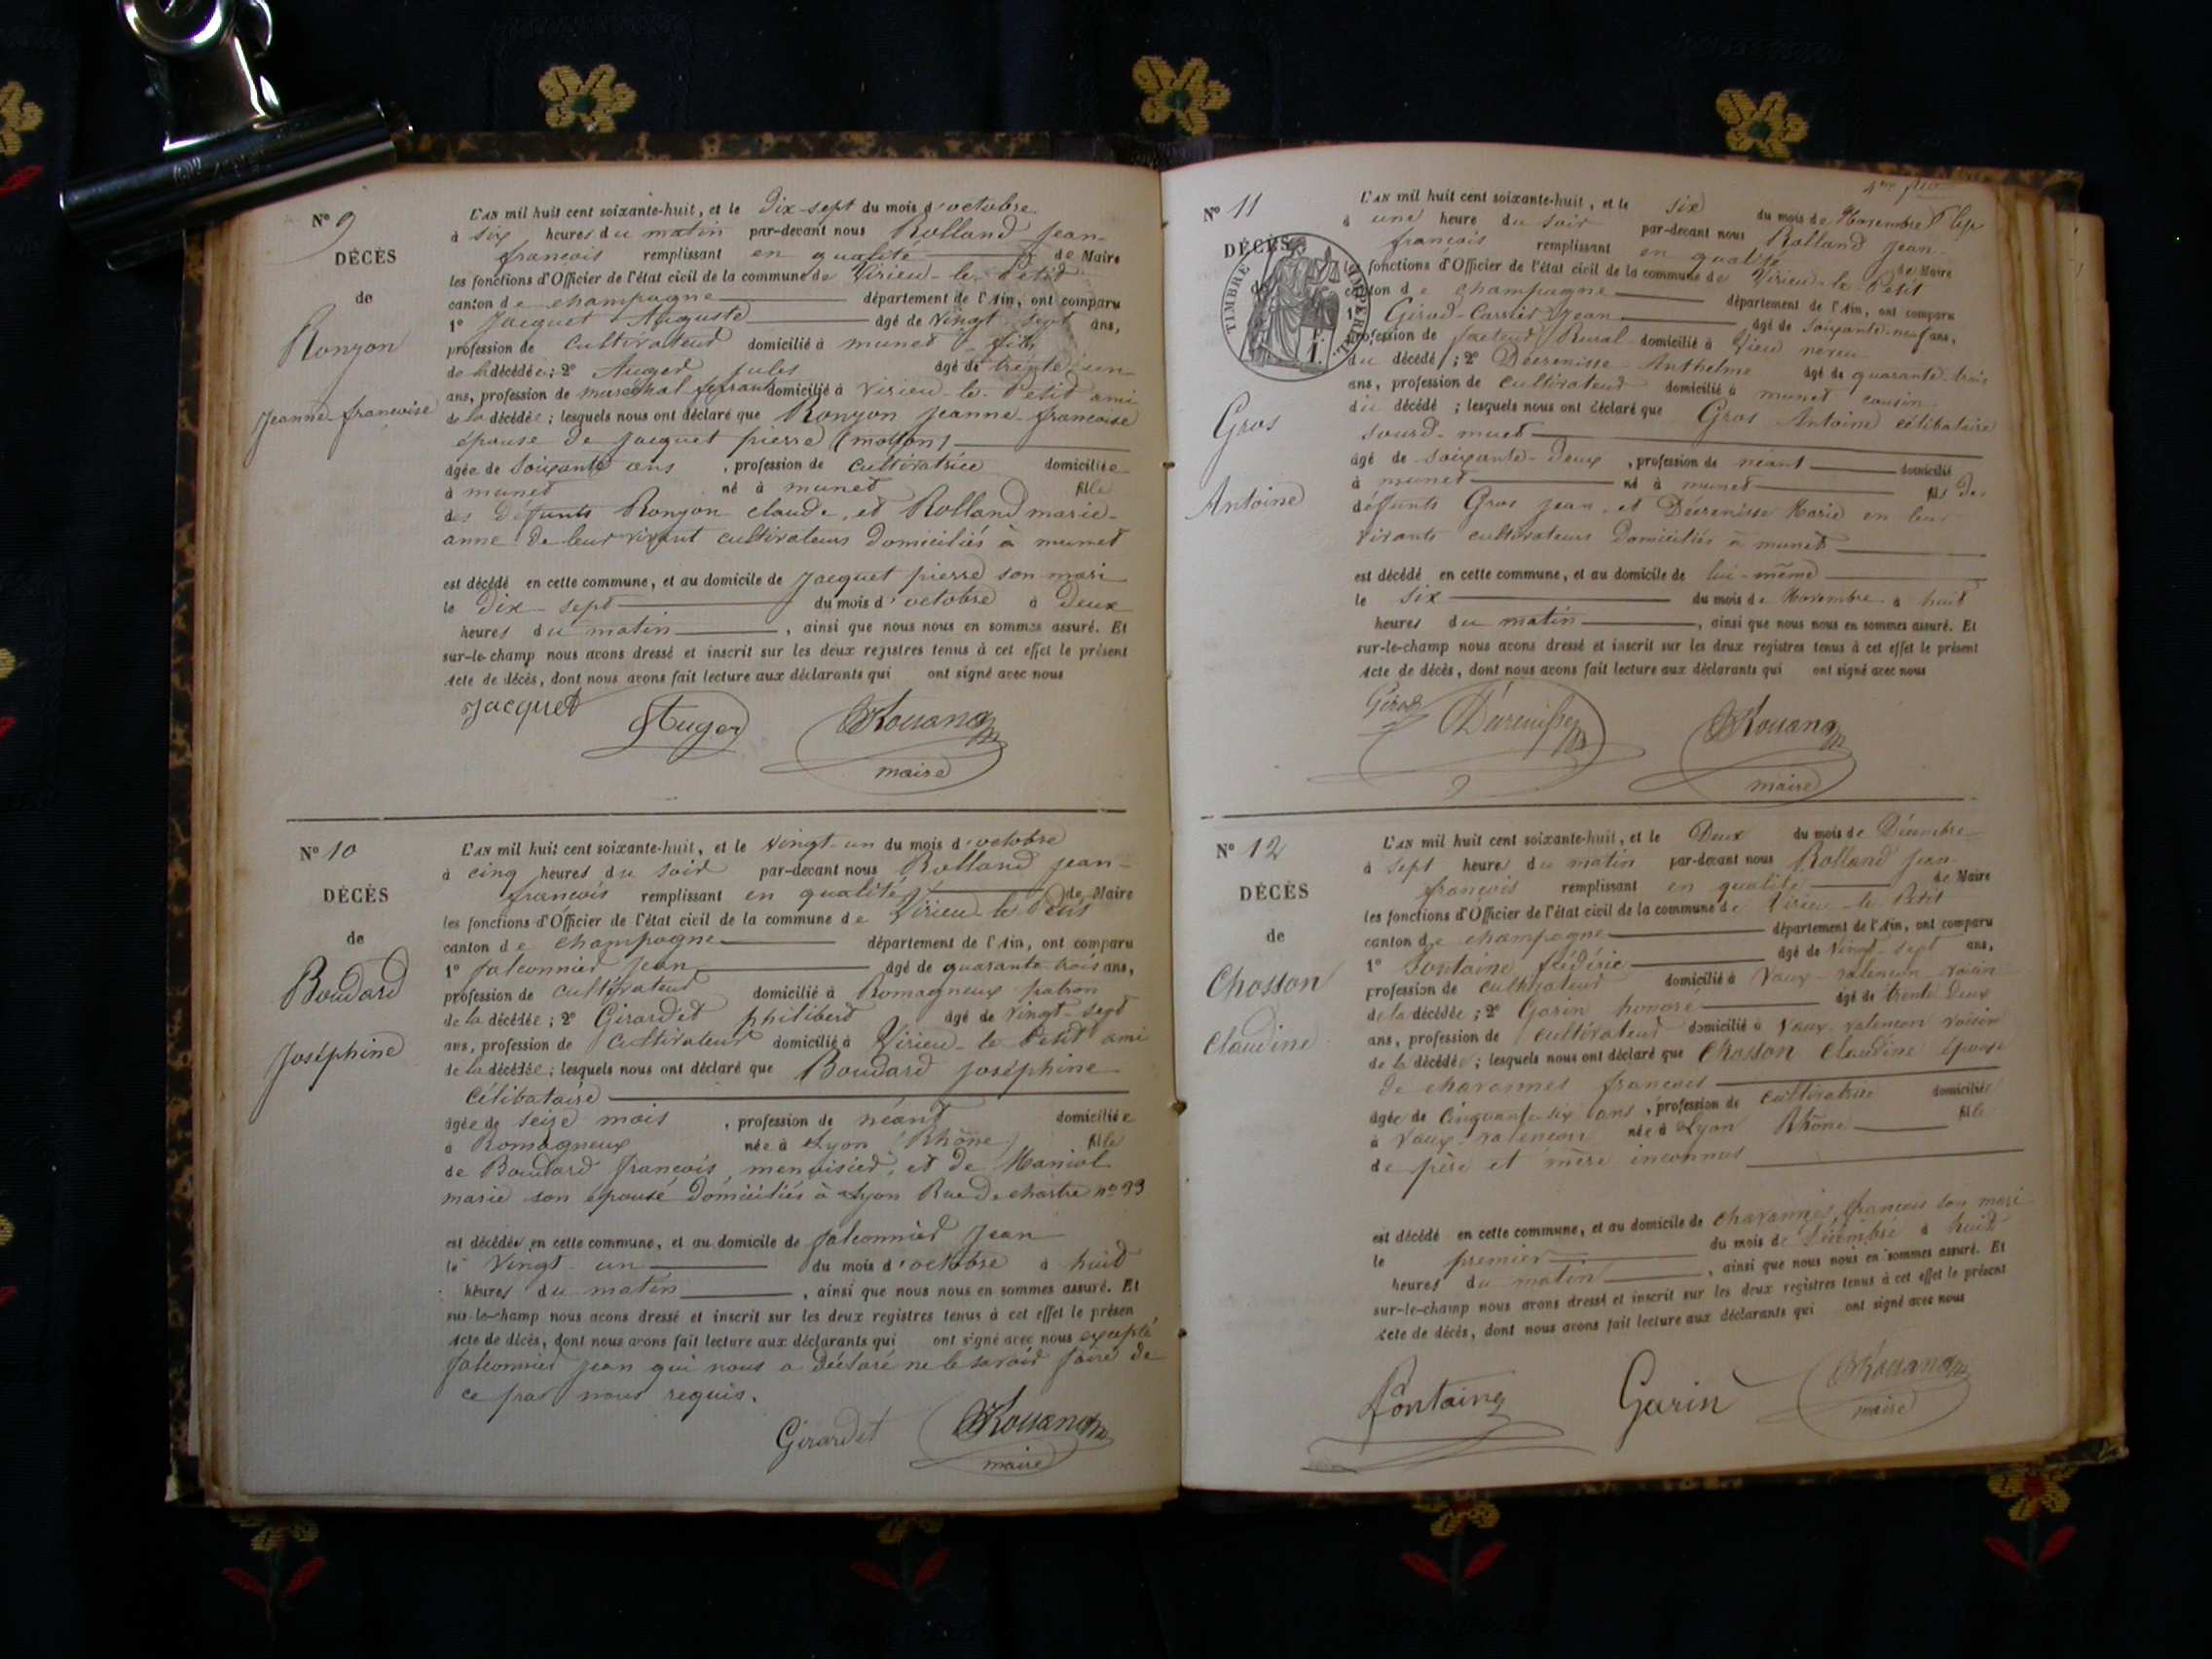 N° 9
DÉCÈS
de
Ronzon
Jeanne-françoise
L'AN mil huit cent soixante-huit, et le Dix-sept du mois d'octobre
à six heures du matin par-devant nous Rolland Jean-
françois remplissant en qualité de Maire
les fonctions d'Officier de l'état civil de la commune de Virieu-le-Petit
canton de champagne département de l'Ain, ont comparu
1° Jacquet Auguste âgé de vingt-sept ans,
profession de cultivateur domicilié à munet fils
de la décédée; 2° Auger jules âgé de trente-un
ans, profession de marechal ferrant domicilié à Virieu-le-Petit ami
de la décédée; lesquels nous ont déclaré que Ronzon jeanne-francoise
épouse de Jacquet pierre
âgée de soixante ans, profession de cultivatrice domiciliée
à munet né à munet fille
des défunts Ronzon claude, et Rolland marie-
anne de leur vivant cultivateurs domiciliés à munet
est décédé en cette commune, et au domicile de Jacquet pierre son mari
le Dix-sept du mois d'octobre à deux
heures du matin, ainsi que nous nous en sommes assuré. Et
sur-le-champ nous avons dressé et inscrit sur les deux registres tenus à cet effet le présent
Acte de décès, dont nous avons fait lecture aux déclarants qui ont signé avec nous
Jacquet Auger
maire
N° 10
DÉCÈS
de
Boudard
Joséphine
L'AN mil huit cent soixante-huit, et le vingt-un du mois d'octobre
à cinq heures du soir par-devant nous Rolland jean-
françois remplissant en qualité de Maire
les fonctions d'Officier de l'état civil de la commune de Virieu-le-Petit
canton de champagne département de l'Ain, ont comparu
1° falconnier jean âgé de quarante-trois ans,
profession de cultivateur domicilié à Romagneux patron
de la décédée; 2° Girardet philibert âgé de vingt-sept
ans, profession de cultivateur domicilié à Virieu-le-Petit ami
de la décédée; lesquels nous ont déclaré que Boudard joséphine
célibataire
âgée de seize mois, profession de néant domiciliée
à Romagneux née à Lyon (Rhône) fille
de Boudard françois, menuisier, et de
marie son épouse domiciliés à Lyon Rue de chartre n° 93
est décédée en cette commune, et au domicile de falconnier Jean
le Vingt-un du mois d'octobre à huit
heures du matin, ainsi que nous nous en sommes assuré. Et
sur-le-champ nous avons dressé et inscrit sur les deux registres tenus à cet effet le présen
Acte de décès, dont nous avons fait lecture aux déclarants qui ont signé avec nous excepté
falconnier jean qui nous a déclaré ne le savoir faire de
ce par nous requis.
Girardet
maire
N° 11
DÉCÈS
TIMBRE IMPÉRIAL
Gros
Antoine
L'AN mil huit cent soixante-huit, et le six du mois de Novembre
à une heure du soir par-devant nous Rolland jean-
françois remplissant en qualité de Maire
les fonctions d'Officier de l'état civil de la commune de Virieu-le-Petit
canton de champagne département de l'Ain, ont comparu
1° Girod-Carrier Jean âgé de soixante-neuf ans,
profession de facteur Rural domicilié à Vieu neveu
du décédé; 2° Décrenisse Anthelme âgé de quarante-trois
ans, profession de cultivateur domicilié à munet cousin
du décédé; lesquels nous ont déclaré que Gros Antoine célibataire
sourd-muet
âgé de soixante-deux, profession de néant domicilié
à munet né à munet fils des
défunts Gros jean, et Décrenisse Marie en leur
vivants cultivateurs domiciliés à munet
est décédé en cette commune, et au domicile de lui-même
le six du mois de Novembre à huit
heures du matin, ainsi que nous nous en sommes assuré. Et
sur-le-champ nous avons dressé et inscrit sur les deux registres tenus à cet effet le présent
Acte de décès, dont nous avons fait lecture aux déclarants qui ont signé avec nous
Girod
maire
N° 12
DÉCÈS
de
Chosson
Claudine
L'AN mil huit cent soixante-huit, et le Deux du mois de Décembre
à sept heures du matin par-devant nous Rolland jean-
françois remplissant en qualité de Maire
les fonctions d'Officier de l'état civil de la commune de Virieu-le-Petit
canton de champagne département de l'Ain, ont comparu
1° Fontaine frédéric âgé de Vingt-sept ans,
profession de cultivateur domicilié à Vaux-valencon voisin
de la décédée; 2° Garin honoré âgé de trente-deux
ans, profession de cultivateur domicilié à Vaux-valencon voisin
de la décédée; lesquels nous ont déclaré que Chosson Claudine épouse
de charannes françois
âgée de cinquante-six ans, profession de cultivatrice domiciliée
à Vaux-valencon née à Lyon Rhône fille
de père et mère inconnus
est décédé en cette commune, et au domicile de charannes françois son mari
le premier du mois de Décembre à huit
heures du matin, ainsi que nous nous en sommes assuré. Et
sur-le-champ nous avons dressé et inscrit sur les deux registres tenus à cet effet le présent
Acte de décès, dont nous avons fait lecture aux déclarants qui ont signé avec nous
Fontaine Garin
maire